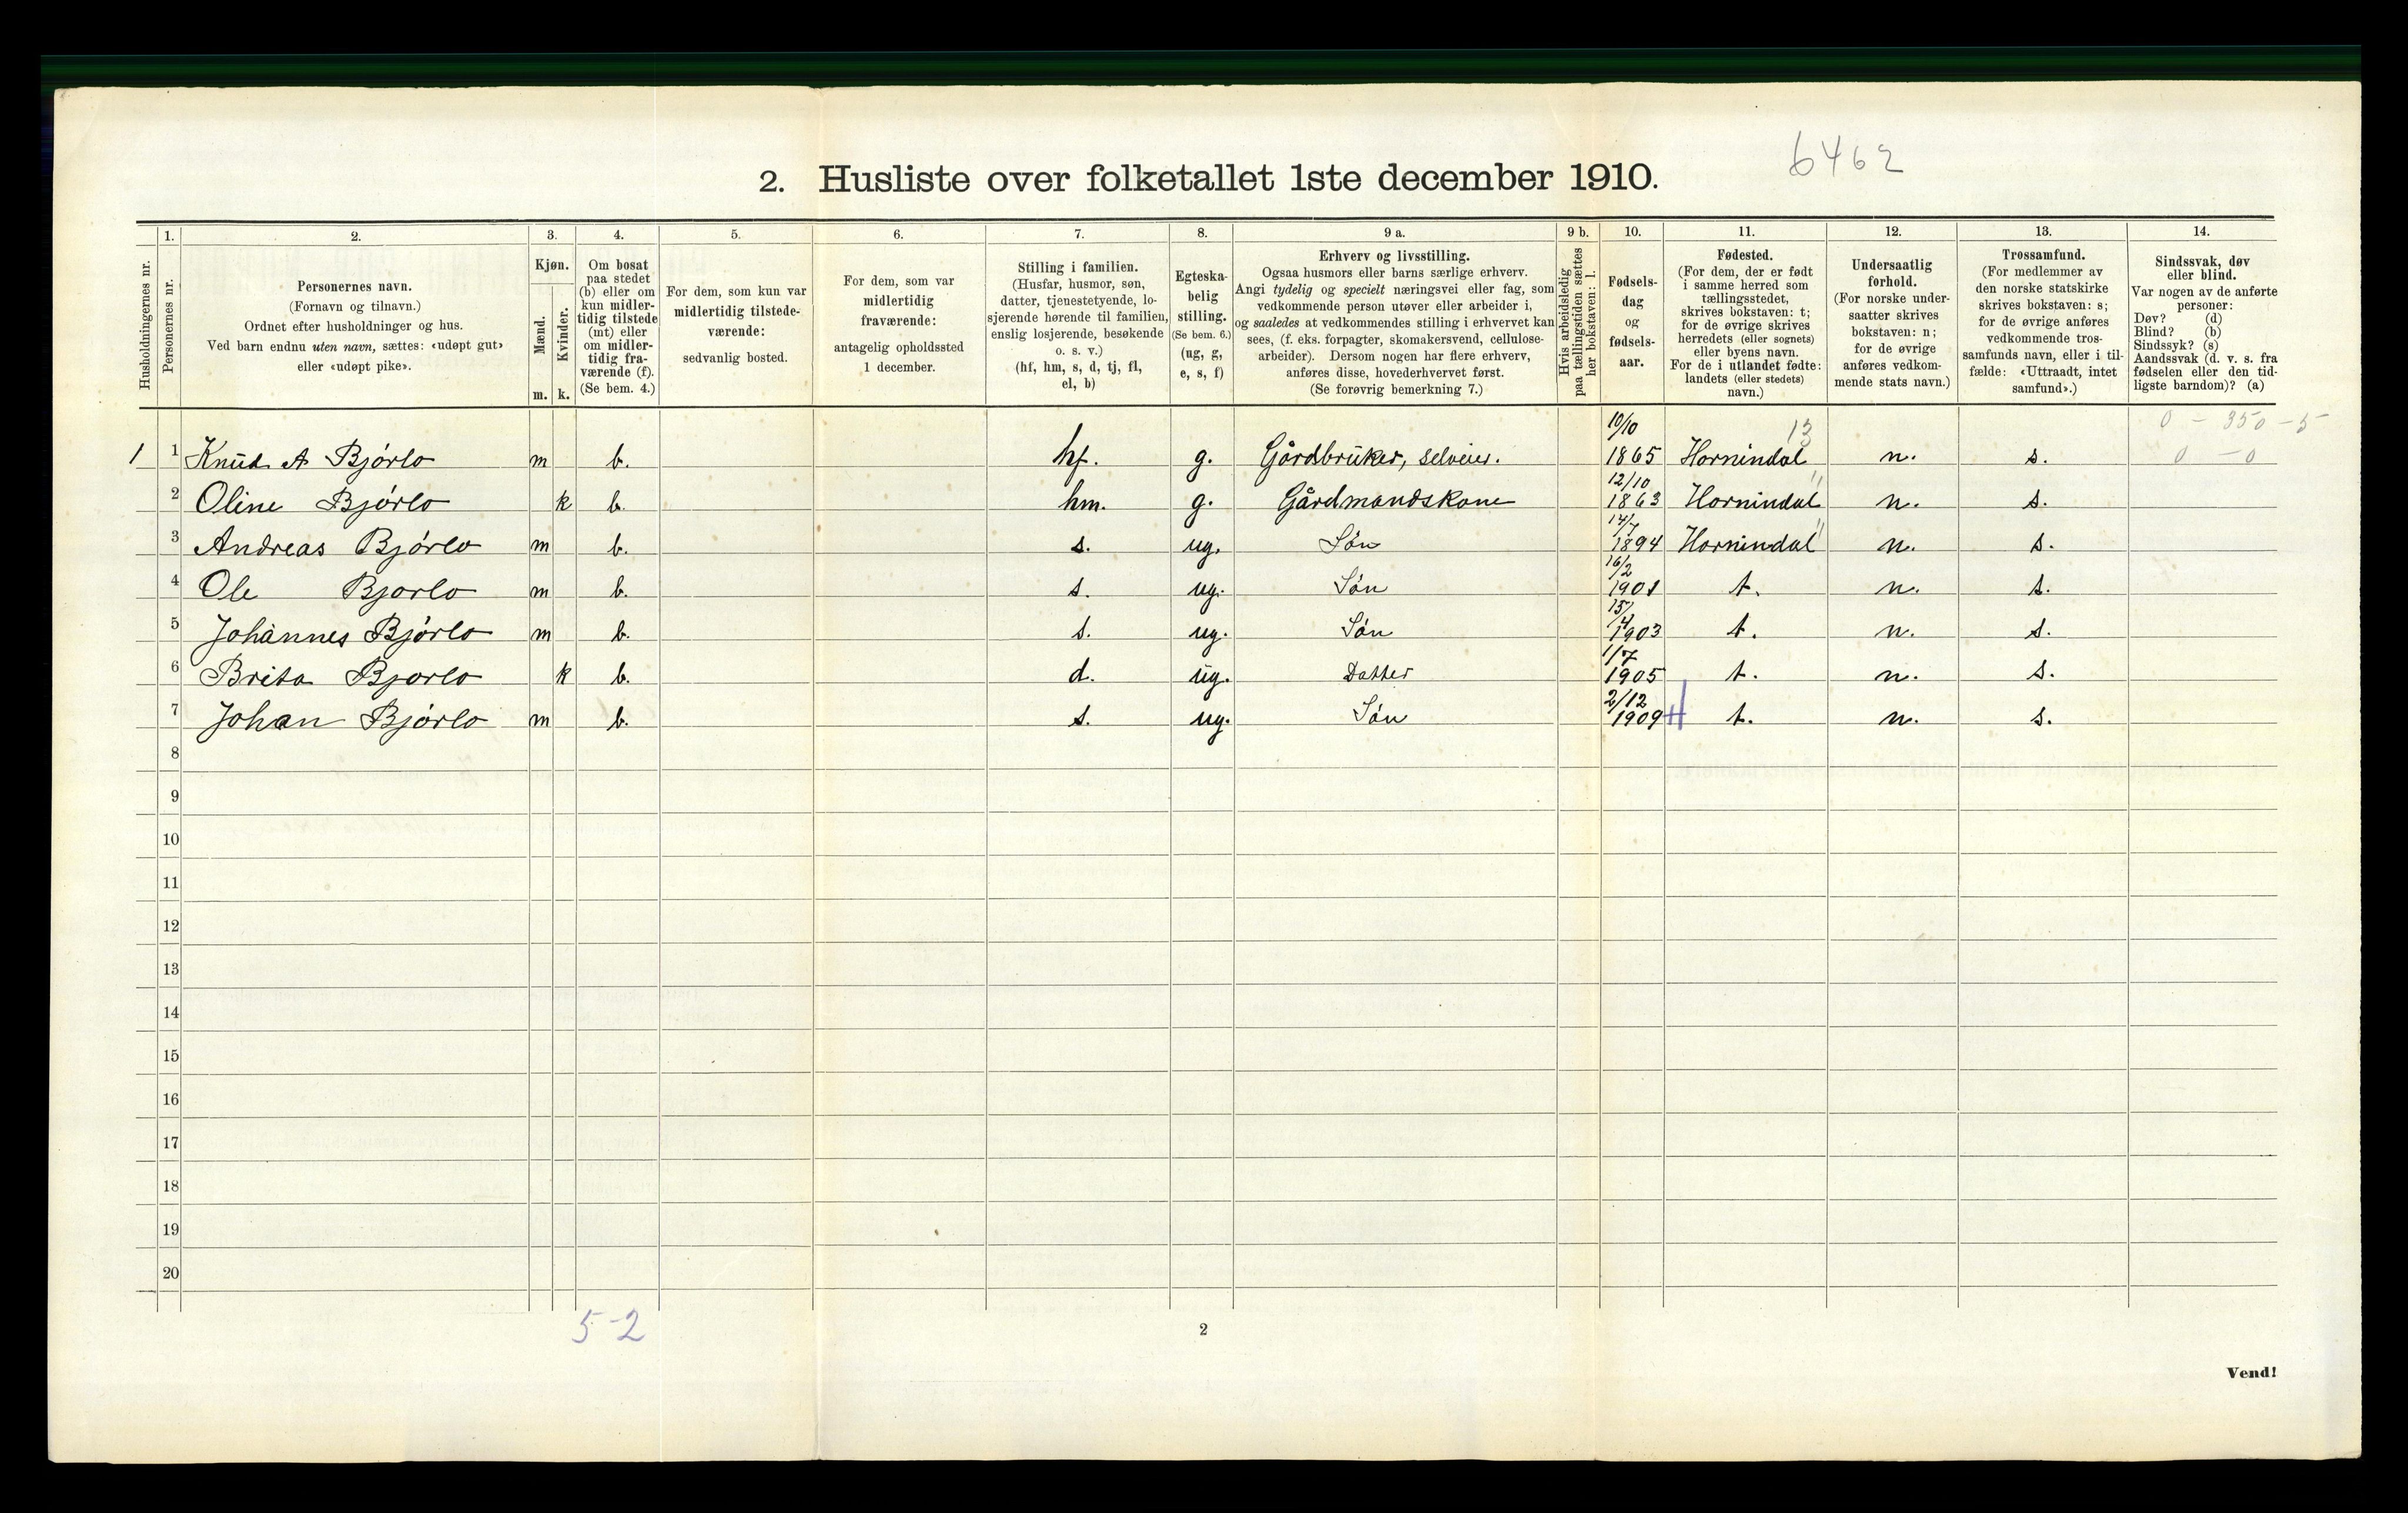 6462
2. Husliste over folketallet 1ste december 1910.
Husholdningernes nr.
1.
Personernes nr.
2.
Personernes navn.
(Fornavn og tilnavn.)
Ordnet efter husholdninger og hus.
Ved barn endnu uten navn, sættes: «udøpt gut»
eller «udøpt pike».
3.
Kjøn.
Mænd.
Kvinder.
m. k.
4.
Om bosat
paa stedet
(b) eller om
kun midler-
tidig tilstede
(mt) eller
om midler-
tidig fra-
værende (f).
(Se bem. 4.)
5.
For dem, som kun var
midlertidig tilstede-
værende:
sedvanlig bosted.
6.
For dem, som var
midlertidig
fraværende:
antagelig opholdssted
1 december.
7.
Stilling i familien.
(Husfar, husmor, søn,
datter, tjenestetyende, lo-
sjerende hørende til familien,
enslig losjerende, besøkende
o. s. v.)
(hf, hm, s, d, tj, fl,
el, b)
8.
Egteska-
belig
stilling.
(Se bem. 6.)
(ug, g,
e, s, f)
9 a.
Erhverv og livsstilling.
Ogsaa husmors eller barns særlige erhverv.
Angi tydelig og specielt næringsvei eller fag, som
vedkommende person utøver eller arbeider i,
og saaledes at vedkommendes stilling i erhvervet kan
sees, (f. eks. forpagter, skomakersvend, cellulose-
arbeider). Dersom nogen har flere erhverv,
anføres disse, hovederhvervet først.
(Se forøvrig bemerkning 7.)
9 b.
Hvis arbeidsledig
paa tællingstiden sættes
her bokstaven: l.
10.
Fødsels-
dag
og
fødsels-
aar.
11.
Fødested.
(For dem, der er født
i samme herred som
tællingsstedet,
skrives bokstaven: t;
for de øvrige skrives
herredets (eller sognets)
eller byens navn.
For de i utlandet fødte:
landets (eller stedets)
navn.)
12.
Undersaatlig
forhold.
(For norske under-
saatter skrives
bokstaven: n;
for de øvrige
anføres vedkom-
mende stats navn.)
13.
Trossamfund.
(For medlemmer av
den norske statskirke
skrives bokstaven: s;
for de øvrige anføres
vedkommende tros-
samfunds navn, eller i til-
fælde: «Uttraadt, intet
samfund».)
14.
Sindssvak, døv
eller blind.
Var nogen av de anførte
personer:
Døv? (d)
Blind? (b)
Sindssyk? (s)
Aandssvak (d. v. s. fra
fødselen eller den tid-
ligste barndom)? (a)
10/10 13 0 - 350 - 5
1 1 Knud A Bjørlo m b. hf. g. Gårdbruker, selveier. 1865 Hornindal n. s. 0 - 0
12/10 "
2 Oline Bjørlo k b. hm. g. Gårdmandskone 1863 Hornindal n. s.
14/7 "
3 Andreas Bjørlo m b. s. ug. Søn 1894 Hornindal n. s.
16/2
4 Ole Bjørlo m b. s. ug. Søn 1901 t. n. s.
15/4
5 Johannes Bjørlo m b. s. ug. Søn 1903 t. n. s.
1/7
6 Brita Bjørlo k b. d. ug. Datter 1905 t. n. s.
2/12
7 Johan Bjørlo m b. s. ug. Søn 1909 t. n. s.
8
9
10
11
12
13
14
15
16
17
18
19
20
5-2
2
Vend!